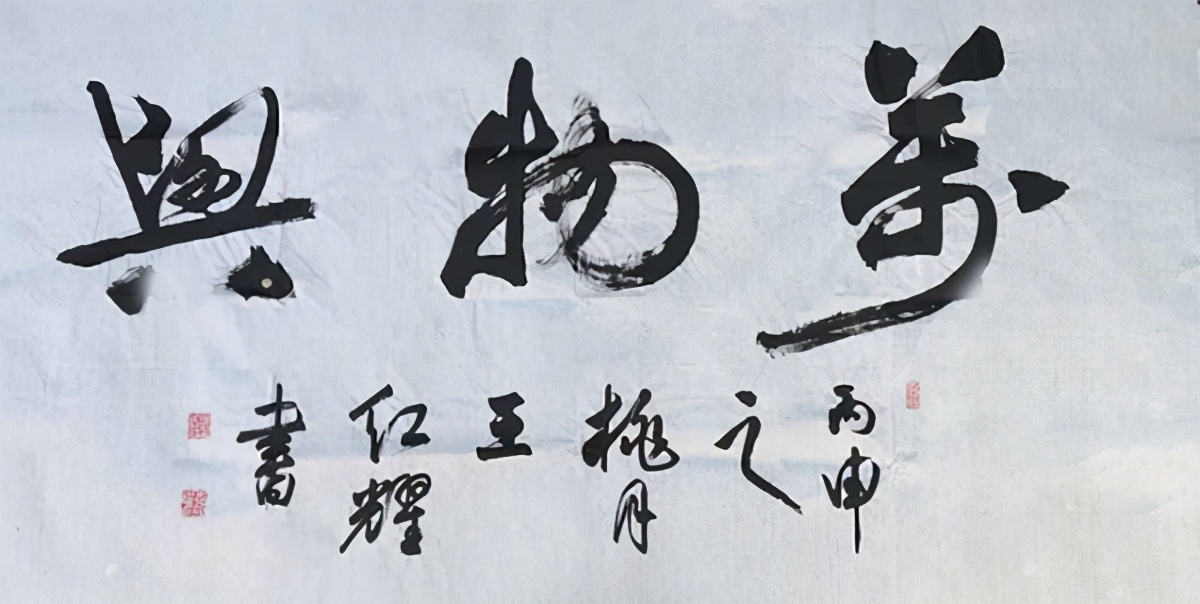 萬物興
丙申
之
桃月
王
红耀
書